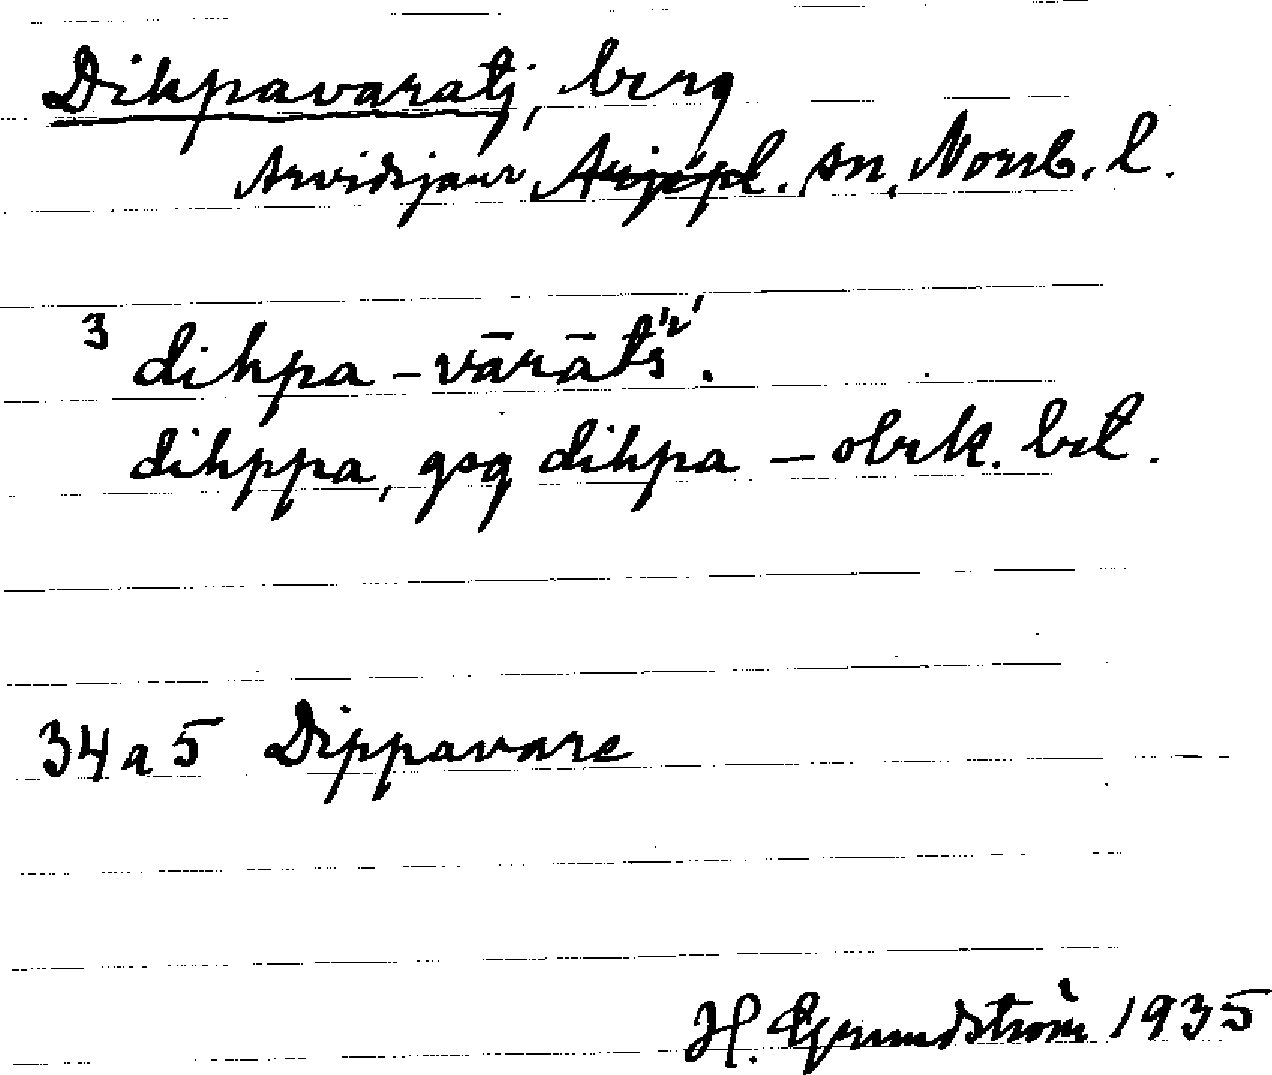 Dihpavaratj, berg
Arvidsjaur Arjepl. sn, Norrb. l.
3 dihpa - vārāts̓.
dihppa, gsg dihpa - obek. bet.
34 a 5 Dippavare
H. Grundström 1935